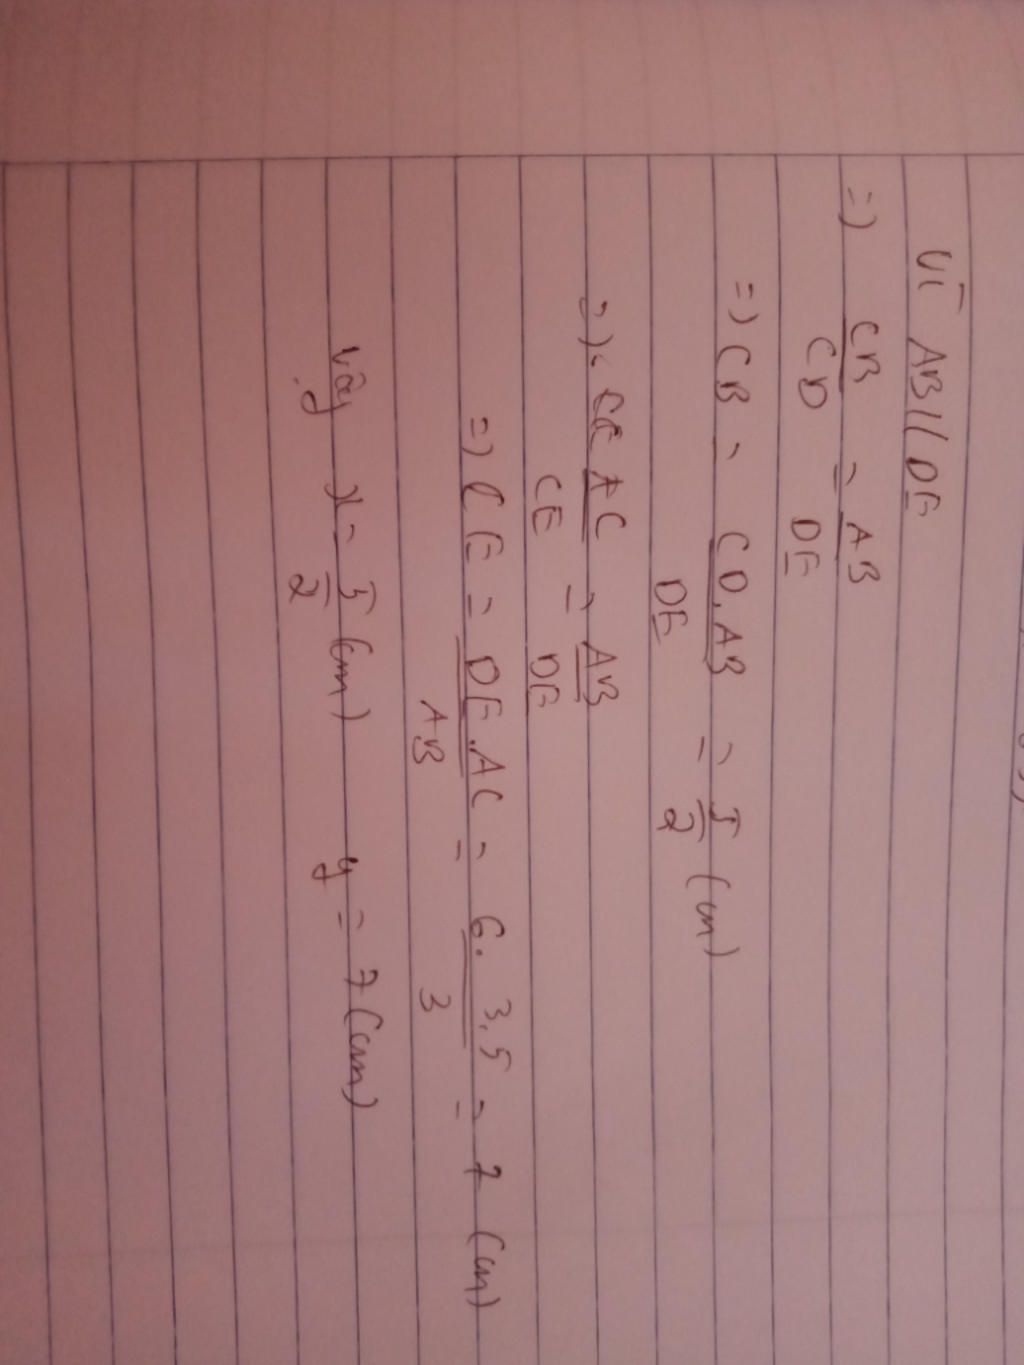 Vì AB // DE
=) CB/CD = AB/DE
=) CB = CD.AB/DE = 5/2 (cm)
=) AC/CE = AB/DE
=) CE = DE.AC/AB = 6.3,5/3 = 7 (cm)
Vậy x = 5/2 (cm) y = 7 (cm)